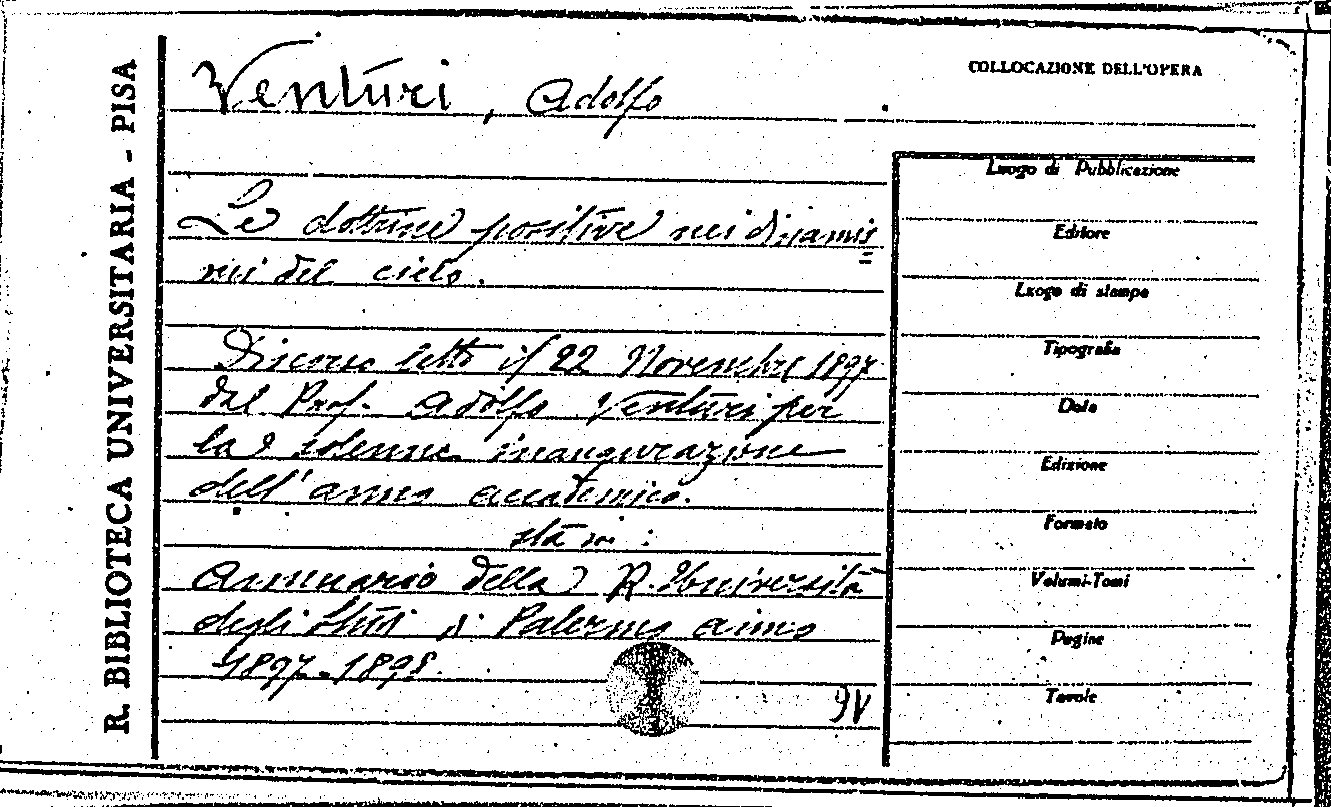 R. BIBLIOTECA UNIVERSITARIA - PISA
Venturi, Adolfo
COLLOCAZIONE DELL'OPERA
Le dottrine positive nei dinamis=
mi del cielo.
Discorso letto il 22 Novembre 1897
dal Prof. Adolfo Venturi per
la solenne inaugurazione
dell'anno accademico.
sta in:
Annuario della R. Università
degli Studi di Palermo anno
1897-1898.
Luogo di Pubblicazione
Editore
Luogo di stampa
Tipografia
Data
Edizione
Formato
Volumi-Tomi
Pagine
Tavole